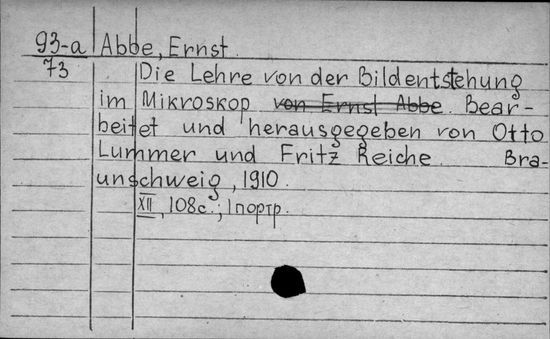 93-a Abbe, Ernst.
73 Die Lehre von der Bildentstehung
im Mikroskop von Ernst Abbe. Bear-
beitet und herausgegeben von Otto
Lummer und Fritz Reiche. Bra-
unschweig, 1910.
XII, 108c.; 1 портр.